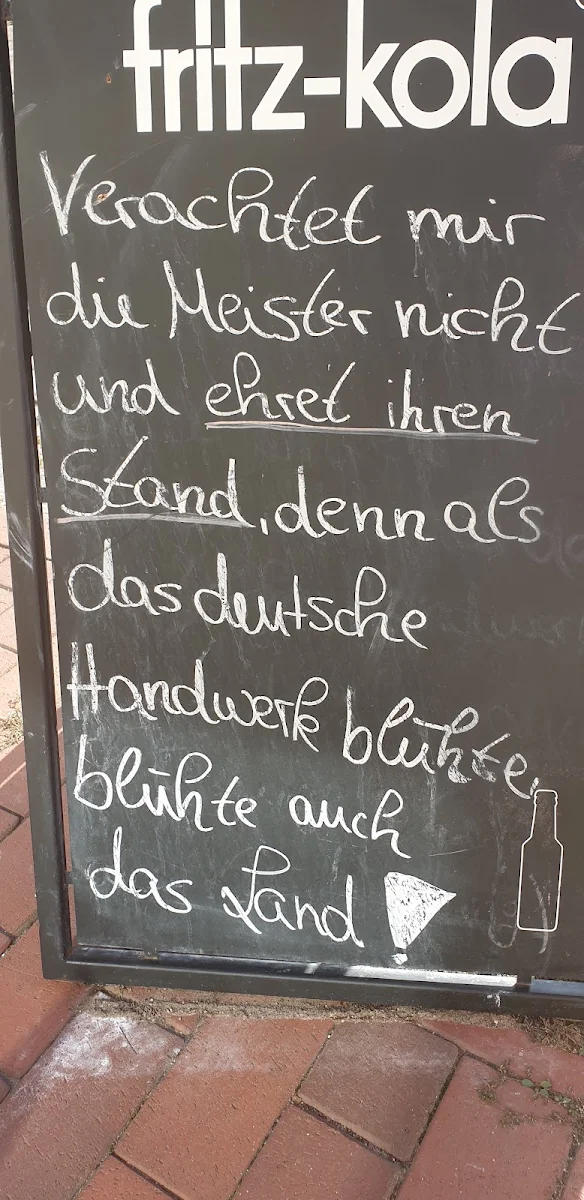 fritz-kola
Verachtet mir
die Meister nicht
und ehret ihren
Stand, denn als
das deutsche
Handwerk blühte,
blühte auch
das Land!